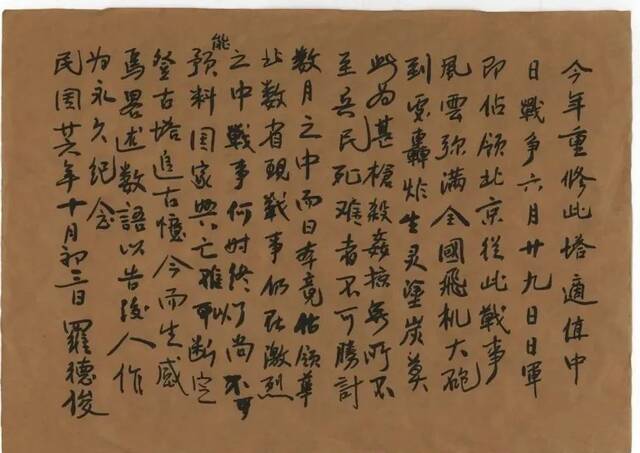 今年重修此塔適值中
日戰爭六月廿九日日軍
即佔領北京從此戰事
風雲弥滿全國飛机大砲
到處轟炸生灵塗炭莫
此为甚槍殺姦掠無所不
至兵民死难者不可勝計
数月之中而日本竟佔領華
北数省現戰事仍在激烈
之中戰事何时終了尚不可
能預料国家興亡难以断定
登古塔追古憶今而生感
焉畧述数語以告後人作
为永久紀念
民国廿六年十月初三日 羅德俊